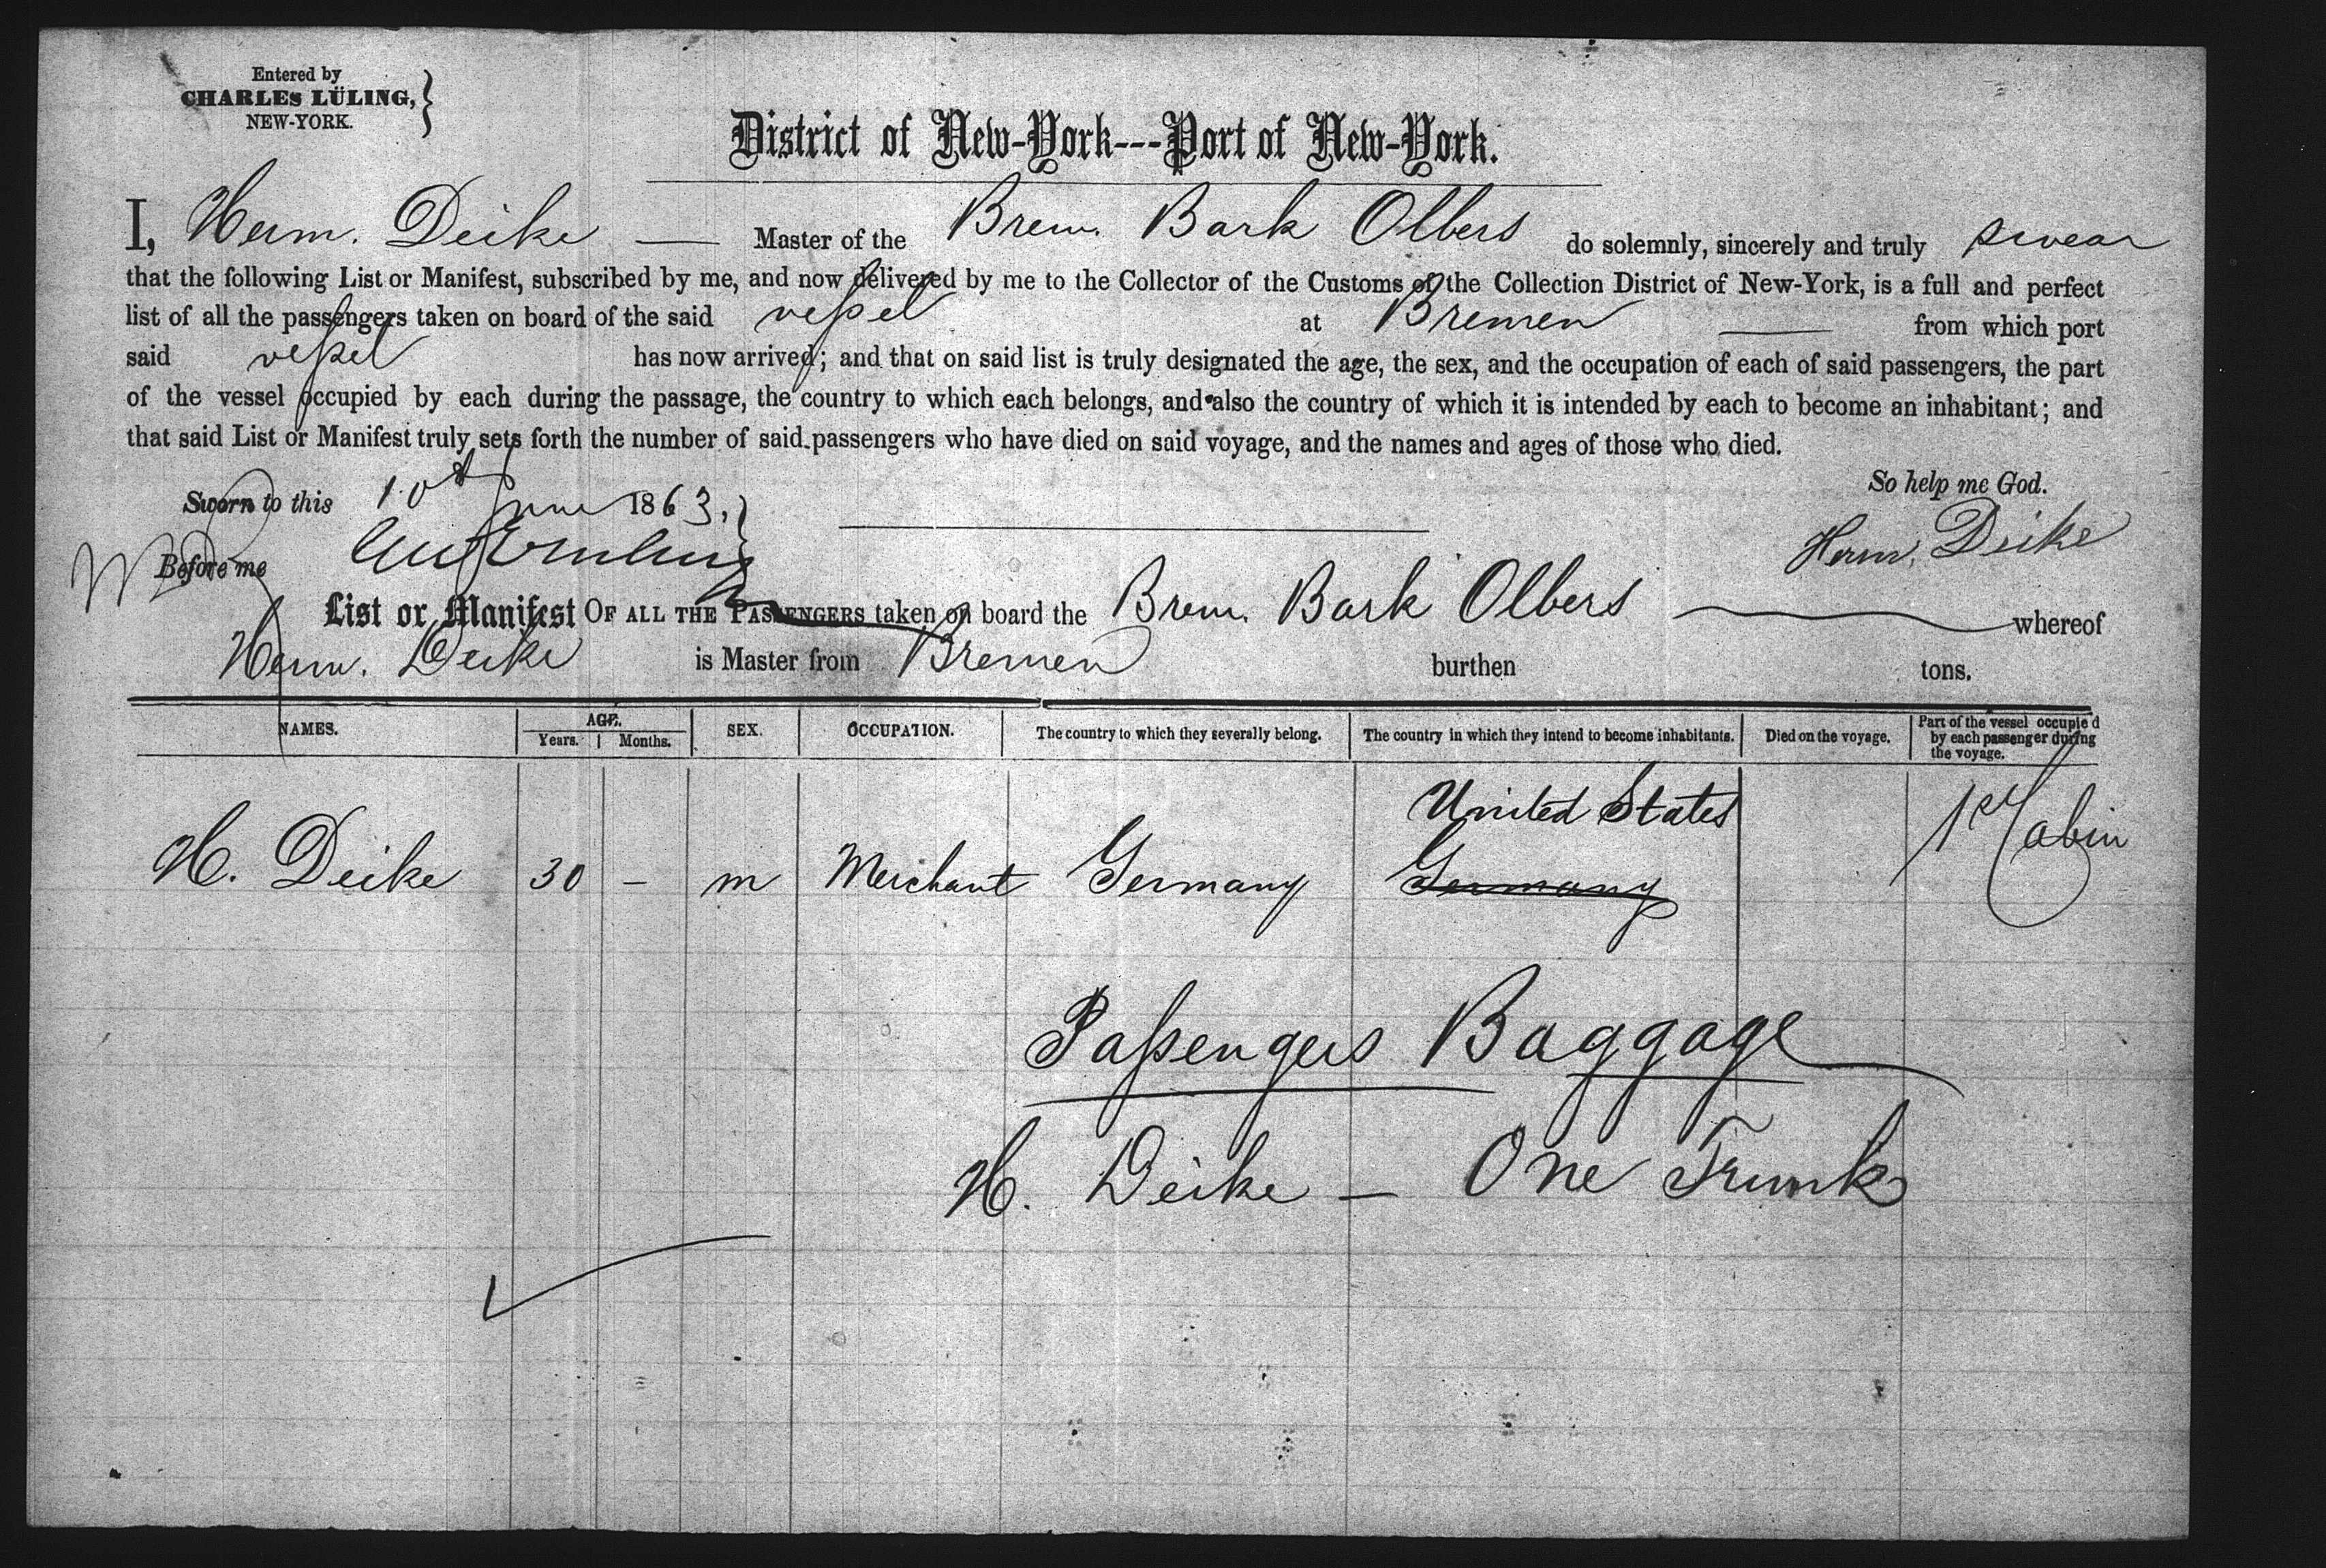 Entered by
CHARLES LÜLING,
NEW-YORK.
District of New-York---Port of New-York.
I, Herm. Deike — Master of the Brem. Bark Olbers do solemnly, sincerely and truly swear
that the following List or Manifest, subscribed by me, and now delivered by me to the Collector of the Customs of the Collection District of New-York, is a full and perfect
list of all the passengers taken on board of the said veſsel at Bremen — from which port
said veſsel has now arrived; and that on said list is truly designated the age, the sex, and the occupation of each of said passengers, the part
of the vessel occupied by each during the passage, the country to which each belongs, and also the country of which it is intended by each to become an inhabitant; and
that said List or Manifest truly sets forth the number of said passengers who have died on said voyage, and the names and ages of those who died.
So help me God.
Sworn to this 10th June 1863,
Herm. Deike
Before me
List or Manifest OF ALL THE PASSENGERS taken on board the Brem. Bark Olbers — whereof
Herm. Deike is Master from Bremen burthen tons.
NAMES. AGE. Years. Months. SEX. OCCUPATION. The country to which they severally belong. The country in which they intend to become inhabitants. Died on the voyage. Part of the vessel occupied by each passenger during the voyage.
United States
H. Deike 30 - m Merchant Germany Germany 1st Cabin
Paſsengers Baggage
H. Deike — One Trunk